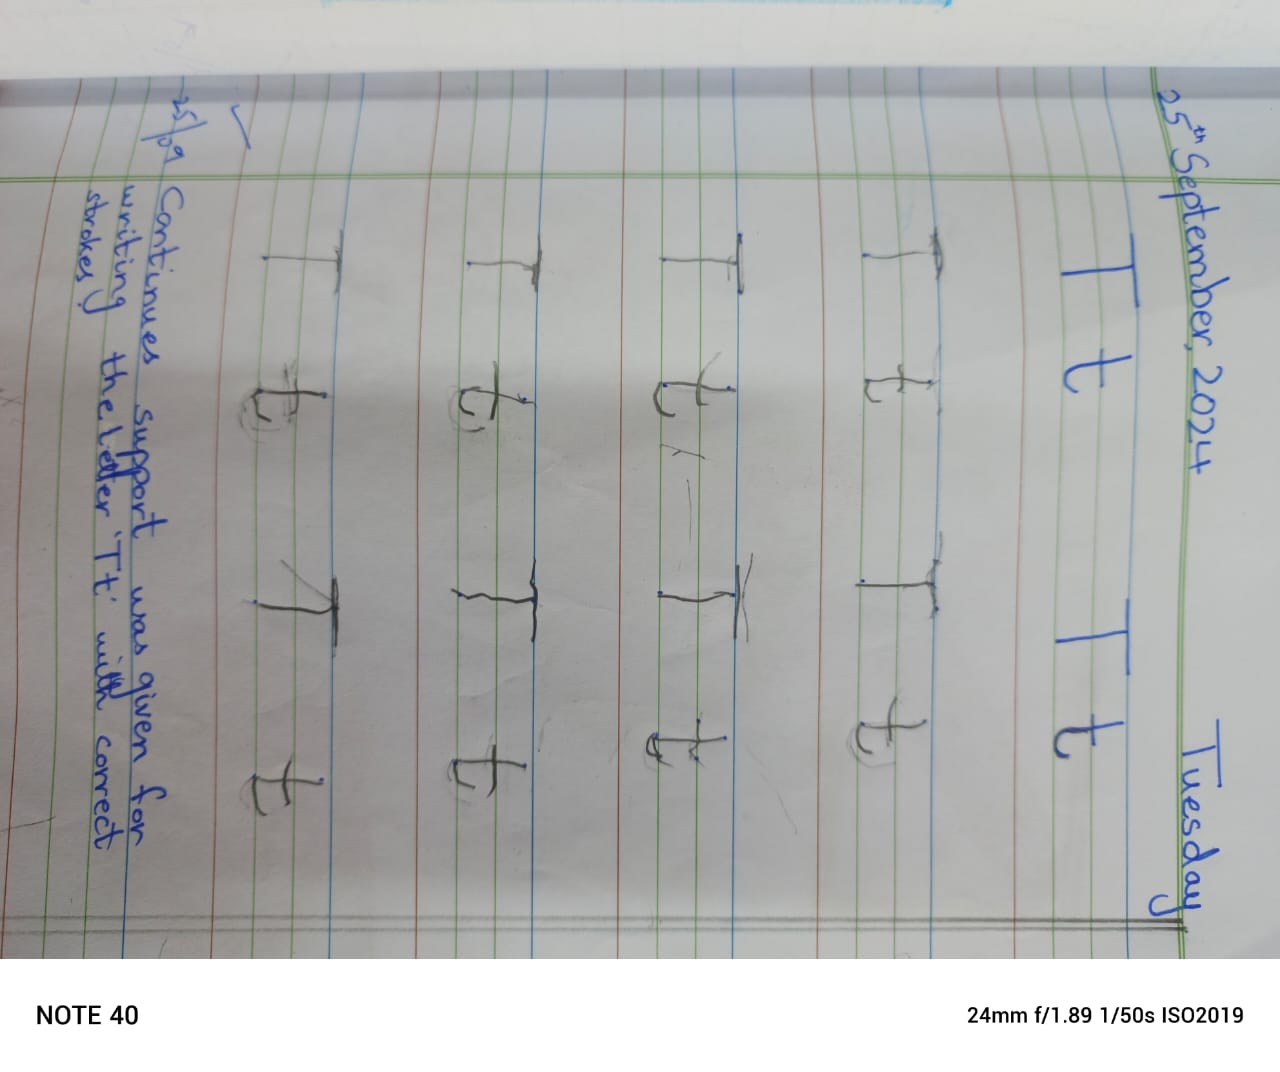 25th September, 2024 Tuesday
T t T t
T t T t
T t T t
T t T t
T t T t
25/09 Continues support was given for
writing the letter 'Tt' with correct
strokes!
NOTE 40
24mm f/1.89 1/50s ISO2019